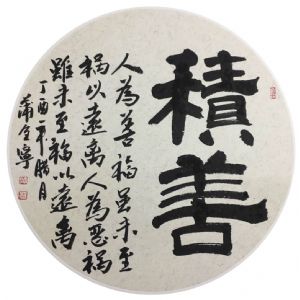 積善
人為善福虽未至
禍以遠离人為惡禍
雖未至福以遠离
丁酉年腊月
蒲全寧